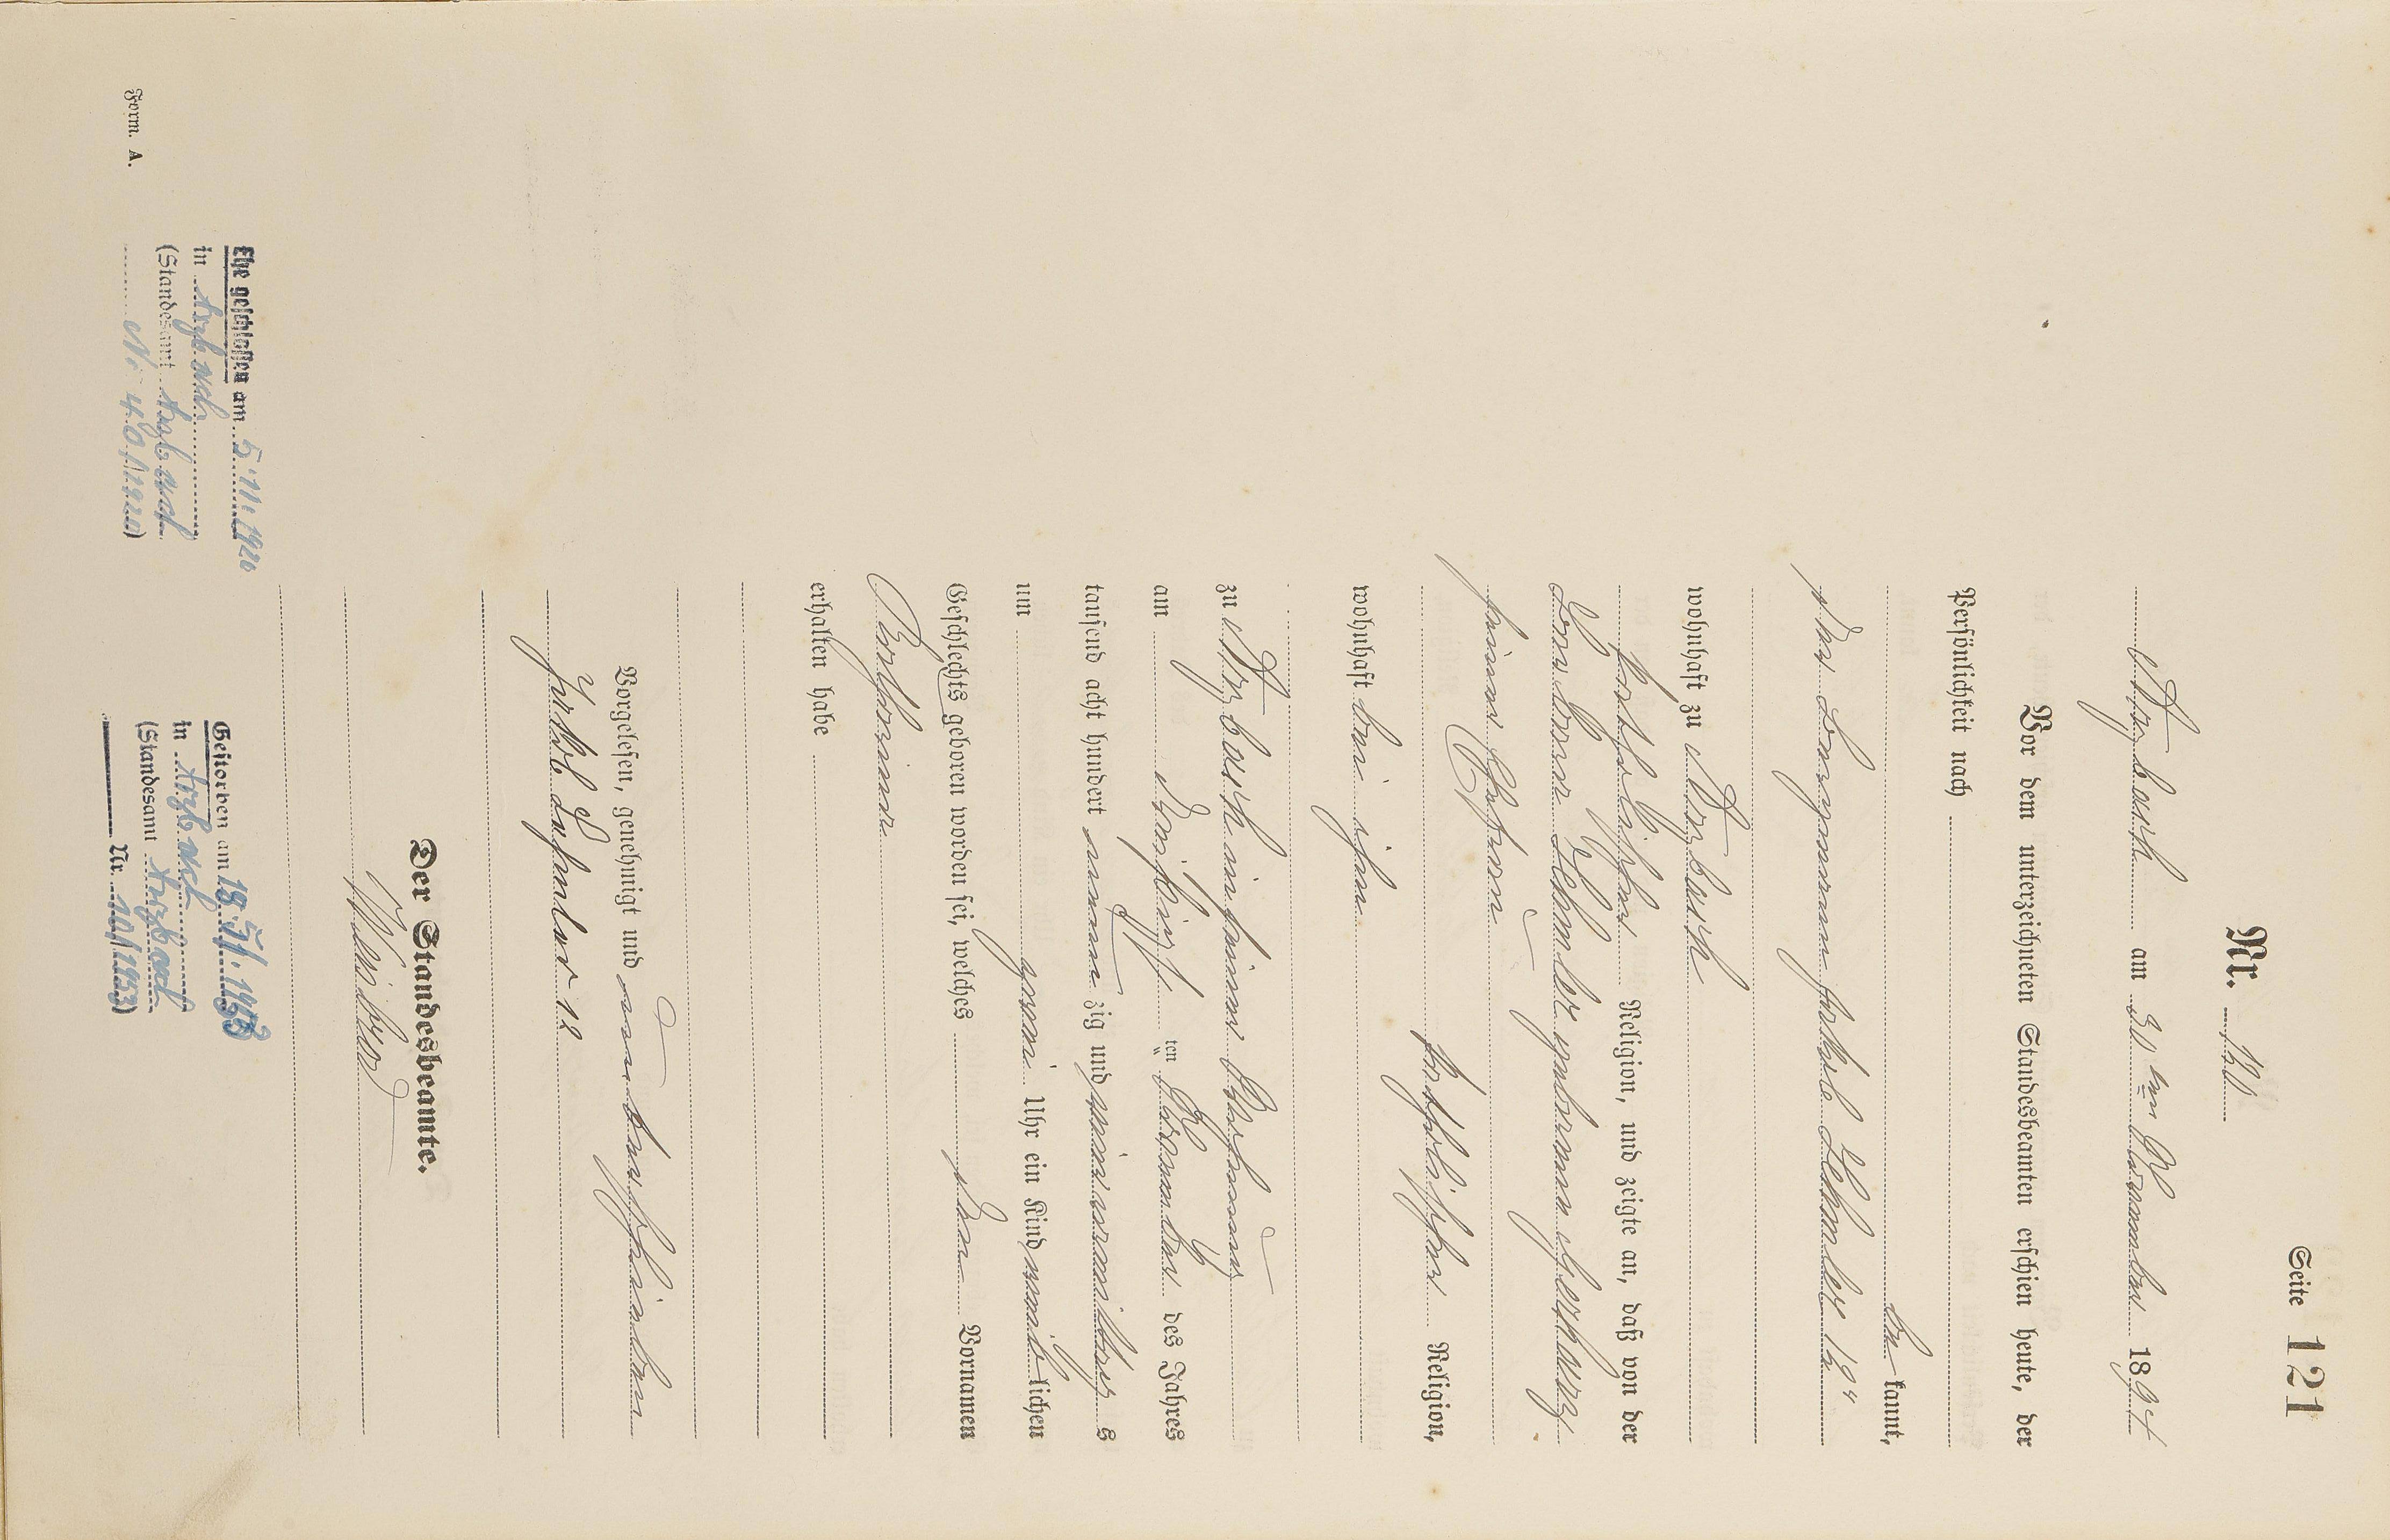 Seite 121
Nr. 120
Arzbach am 30ten November 1894
Vor dem unterzeichneten Standesbeamten erschien heute, der
Persönlichkeit nach
be kannt,
der Bergmann Jakob Lehmler 12r
wohnhaft zu Arzbach
katholischer Religion, und zeigte an, daß von der
Barbara Lehmler geborenen Gerharz
seiner Ehefrau
katholischer Religion,
wohnhaft bei ihm
zu Arzbach in seiner Wohnung
am dreißigs ten November des Jahres
tausend acht hundert neun zig und vier vormittag s
um zwei Uhr ein Kind weib lichen
Geschlechts geboren worden sei, welches den Vornamen
Katharina
erhalten habe
Vorgelesen, genehmigt und unterschrieben
Jakob Lehmler 12
Der Standesbeamte.
Ehe geschlossen am 5.11.1920
in Arzbach
(Standesamt Arzbach
Nr. 40/1920)
Gestorben am 1953
in Arzbach
(Standesamt Arzbach
Nr. 10/1953)
Form. A.